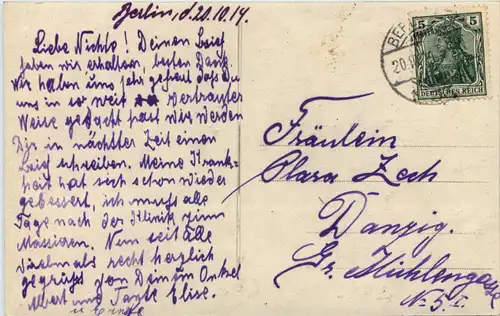 Berlin, d. 20.10.14.
Liebe Nichte! Deinen Brief
haben wir erhalten, besten Dank.
Wir haben uns sehr gefreut dass Du
uns in so weit vertrauter
Weise gedacht hast wir werden
Dir in nächster Zeit einen
Brief schreiben. Meine Krank-
heit hat sich schon wieder
gebessert, ich muss alle
Tage nach der Klinik zum
Massieren. Nun seit alle
vielmals recht herzlich
gegrüßt von Deinem Onkel
Albert und Tante Elise.
u
5
DEUTSCHES REICH
5
BER
20.
Fräulein
Clara Zech
Danzig.
Gr. Mühlengasse
No 5 I.